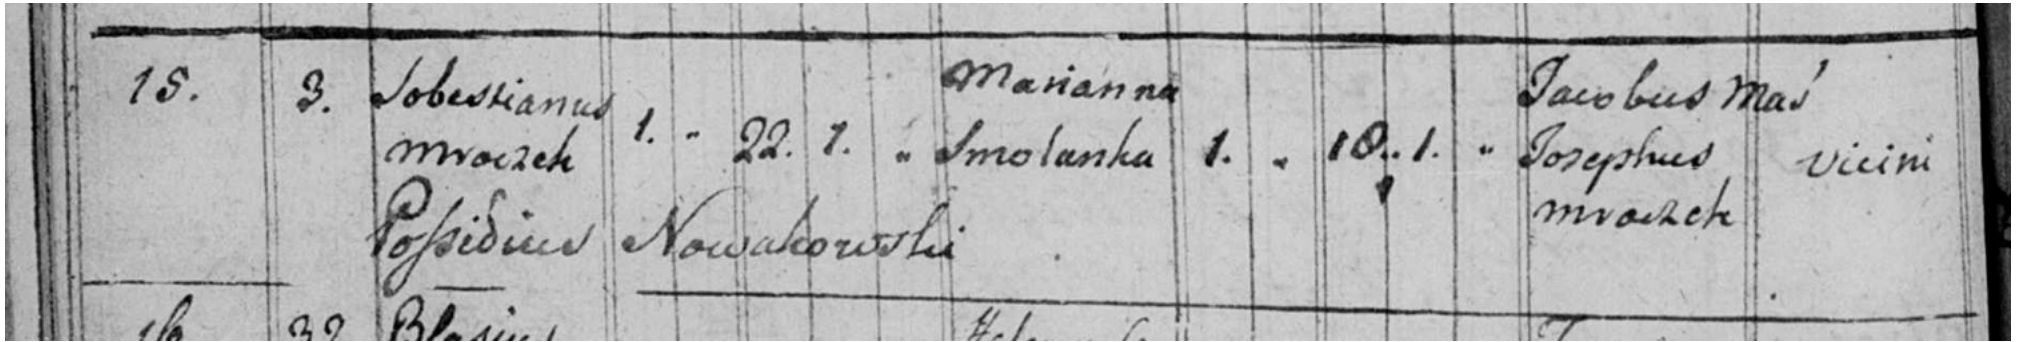 15. 3. Sobestianus Mroczek 1. " 22. 1. " Marianna Smolanka 1. " 18. 1. " Jacobus Maś
Josephus Mroczek vicini
Possidius Nowakowski
16 32 Blasius